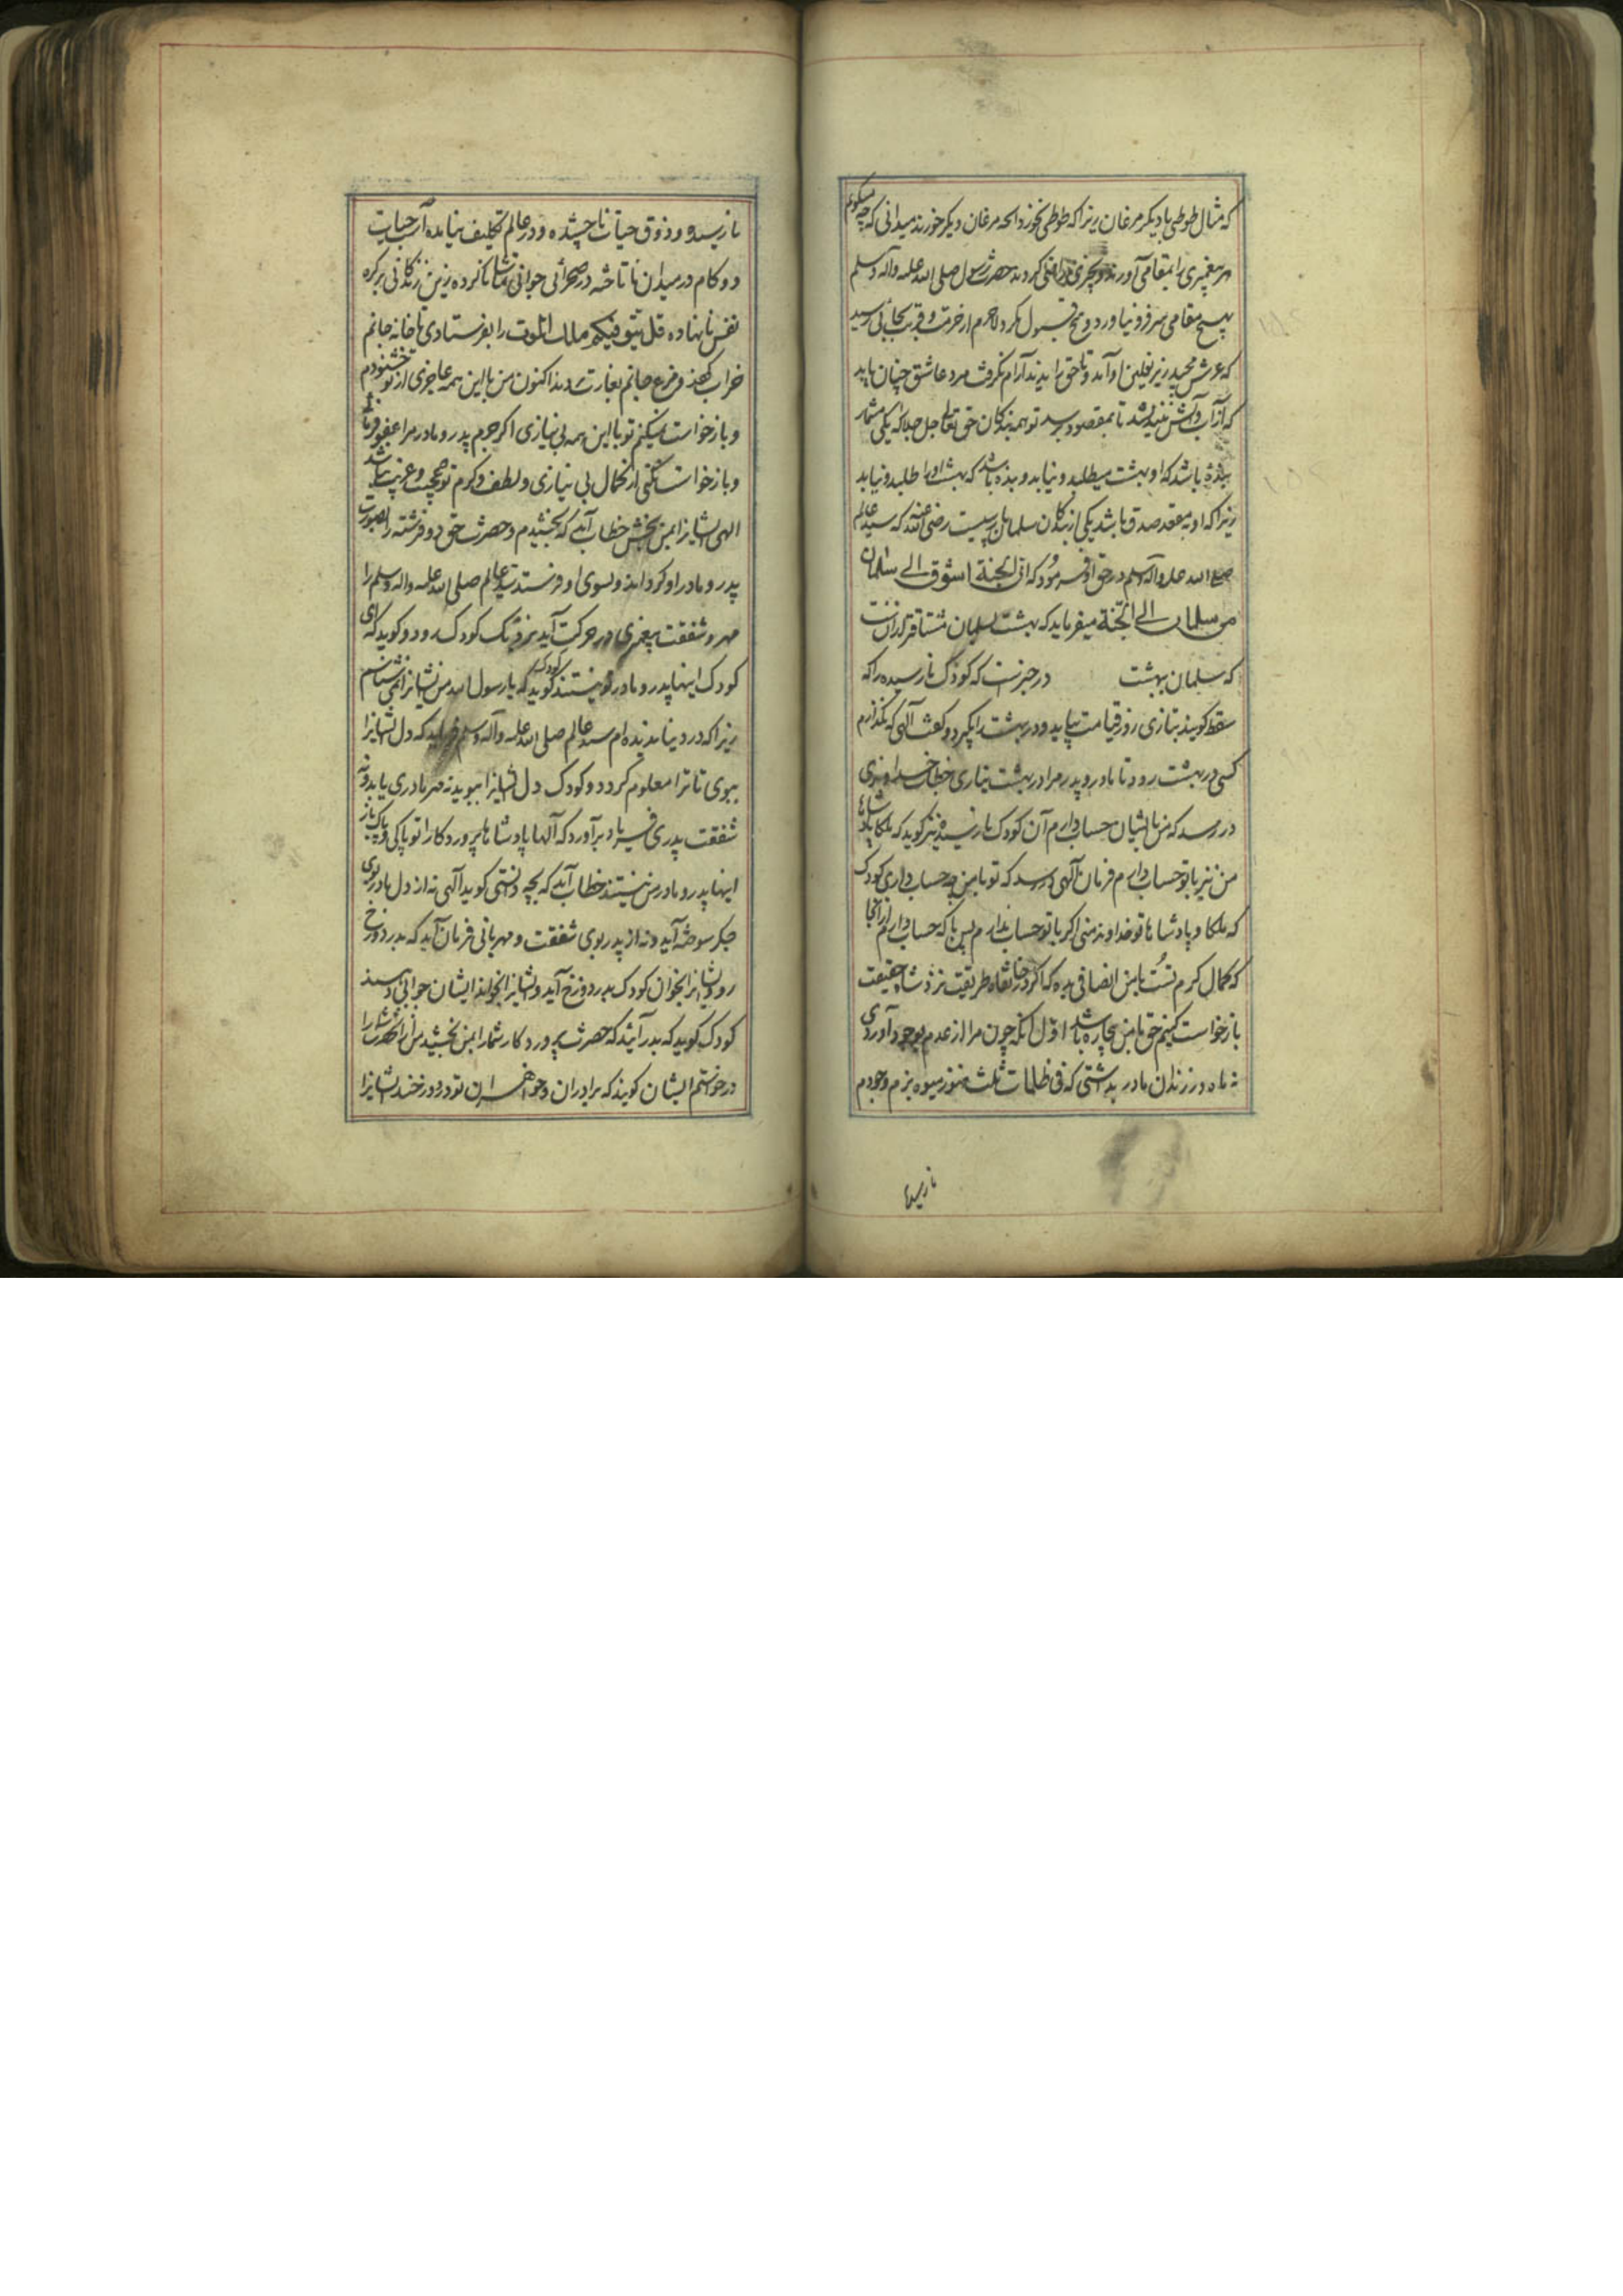 که مثال طوطی با دیکر مرغان زیرا که طوطی نخورد انچه مرغان دیکر خورند میدانی که چه میکویم
هر پیغمبری را بمقامی آوردند و بچیزی راضی کردند حضرت رسول صلی الله علیه واله وسلم
بهیچ مقامی سر فرو نیاورد و هیچ قبول نکرد لاجرم از حرمت و قربت بجائی رسید
که عرش مجید زیر نعلین او آمد و تا حق را ندید آرام نکرفت مرد عاشق چنان باید
که از آب و آتش نیندیشد تا بمقصود رسد تو همه بندکان حق تعالی جل جلاله یکی مشمار
بنده باشد که او بهشت میطلبد و نیابد و بنده باشد که بهشت او را طلبد و نیابد
زیرا که او بمقعد صدق باشد یکی از بندکان سلمان پارسیست رضی الله عنه که سید عالم
صلی الله علیه وآله وسلم در حق او فرمود که ان الجنة اشوق الی سلمان
من سلمان الی الجنة میفرماید که بهشت بسلمان مشتاقتر از آنست
که سلمان ببهشت در خبرست که کودک نارسیده را که
سقط کویند بتازی روز قیامت بیاید و در بهشت را بکیرد و کوید آلهی که نکذارم
کسی در بهشت رود تا مادر و پدر مرا در بهشت نیاری خطاب خداوندی
در رسد که من با ایشان حساب دارم آن کودک نارسیده نیز کوید که ملکا پادشاها
من نیز با تو حساب دارم فرمان آلهی رسد که تو با من چه حساب داری کودک
که ملکا و پادشاها تو خداوند منی اکر با تو حساب ندارم پس با که حساب دارم از آنجا
که کمال کرم تست با من انصافی بده که اکر در خانقاه طریقت نزد شاه حقیقت
بازخواست کنم حق با من بیچاره باشد اول آنکه چون مرا از عدم بوجود آوردی
نه ماه در زندان مادر بداشتی که فی ظلمات ثلث هنوز میوه بزم وجودم
نارسیده
نارسیده و ذوق حیات ناچشیده و در عالم تکلیف نیامده آب حیات
دو کام در میدان ناتاخته در صحرائی جوانی تماشا ناکرده زین زندکانی بر کره
نفس نانهاده قل یتوفیکم ملك الموت را بفرستادی تا خانه جانم
خراب کند و مرغ جانم بغارت دهد اکنون من با این همه عاجزی از تو خشنودم
و بازخواست نمیکنم تو با این همه بی نیازی اکر جرم پدر و مادر مرا عفو فرمائی
و بازخواست نکنی از کمال بی نیازی و لطف و کرم تو عجیب و غریب نباشد
الهی ایشانرا بمن بخش خطاب آید که بخشیدم و حضرت حق دو فرشته را بصورت
پدر و مادر او کرداند و بسوی او فرستد سید عالم صلی الله علیه واله وسلم را
مهر و شفقت پیغمبری در حرکت آید نزدیک کودک رود و کوید که ای
کودک اینها پدر و مادر تو نیستند کودک کوید که یا رسول الله من ایشانرا نمی شناسم
زیرا که در دنیا ندیده ام سید عالم صلی الله علیه وآله وسلم فرماید که دل ایشانرا
ببوی تا ترا معلوم کردد و کودک دل ایشانرا ببوید نه مهر مادری یابد و نه
شفقت پدری فریاد برآورد که آلها پادشاها پروردکارا تو پاکی و پاک باز
اینها پدر و مادر من نیستند خطاب آید که بچه دانستی کوید آلهی نه از دل مادر بوی
جکر سوخته آید و نه از پدر بوی شفقت و مهربانی فرمان آید که بدر دوزخ
رو و ایشانرا بخوان کودک بدر دوزخ آید و ایشانرا بخواند ایشان جوابی دهند
کودک کوید که بدر آئید که حضرت پروردکار شما را بمن بخشید من از آنحضرت شما را
درخواستم ایشان کویند که برادران و خواهران تو در دوزخند ایشانرا